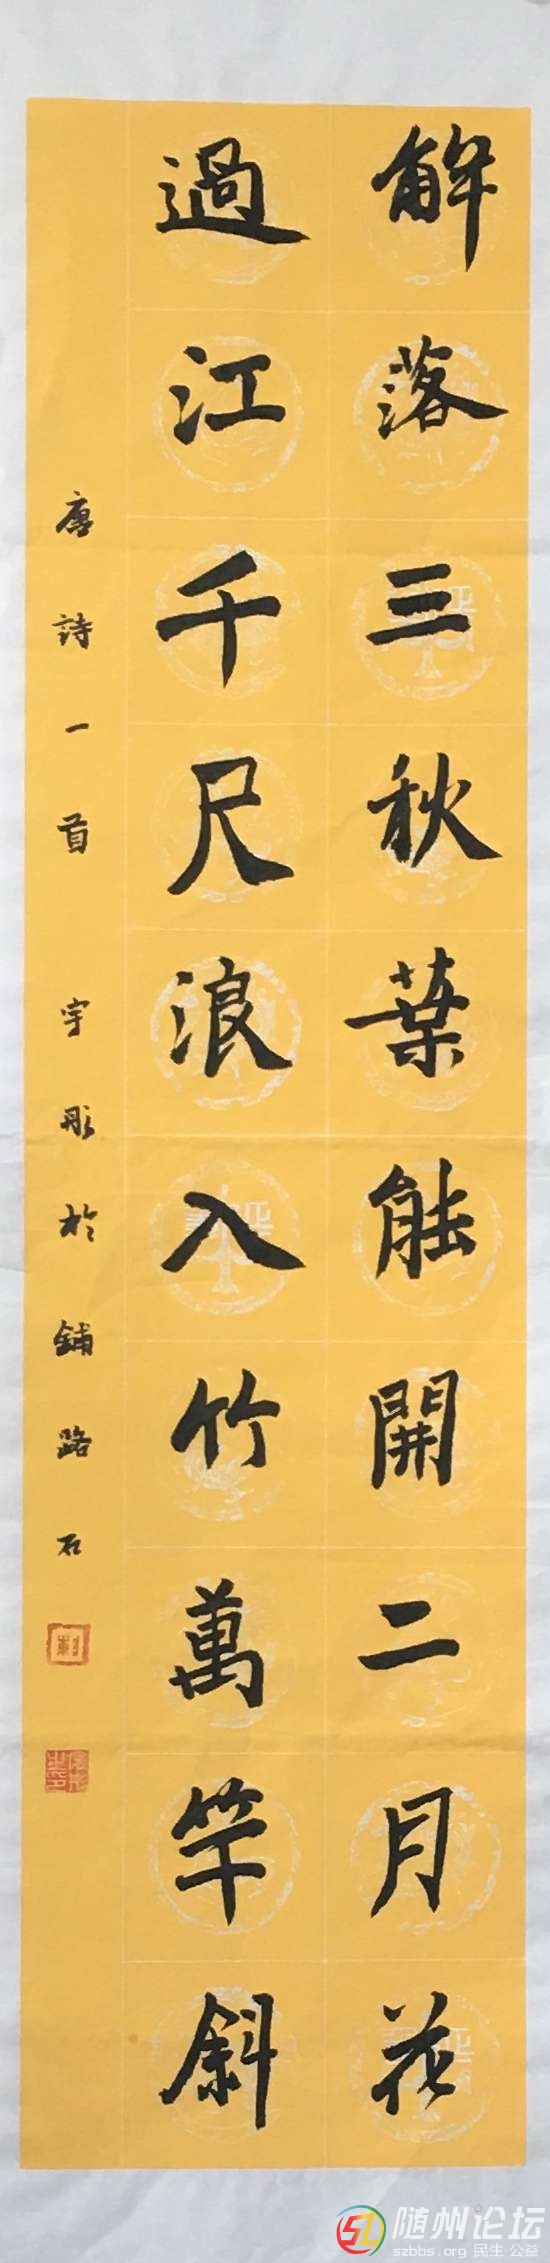 解落三秋葉能開二月花
過江千尺浪入竹萬竿斜
唐詩一首 宇彤於鋪路石
随州论坛
szbbs.org 民生·公益